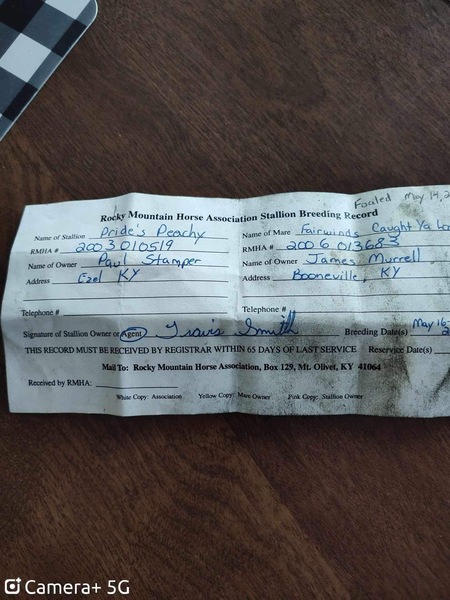 Foaled May 14, 2
Rocky Mountain Horse Association Stallion Breeding Record
Name of Stallion Pride's Peachy
RMHA # 2003010519
Name of Owner Paul Stamper
Address Ezel KY
Telephone #
Name of Mare Fairwinds Caught Ya Loo
RMHA # 2006013683
Name of Owner James Murrell
Address Booneville, KY
Telephone #
Signature of Stallion Owner or Agent Travis Smith Breeding Date(s) May 16-
THIS RECORD MUST BE RECEIVED BY REGISTRAR WITHIN 65 DAYS OF LAST SERVICE Reservice Date(s)
Mail To: Rocky Mountain Horse Association, Box 129, Mt. Olivet, KY 41064
Received by RMHA:
White Copy: Association Yellow Copy: Mare Owner Pink Copy: Stallion Owner
Camera+ 5G